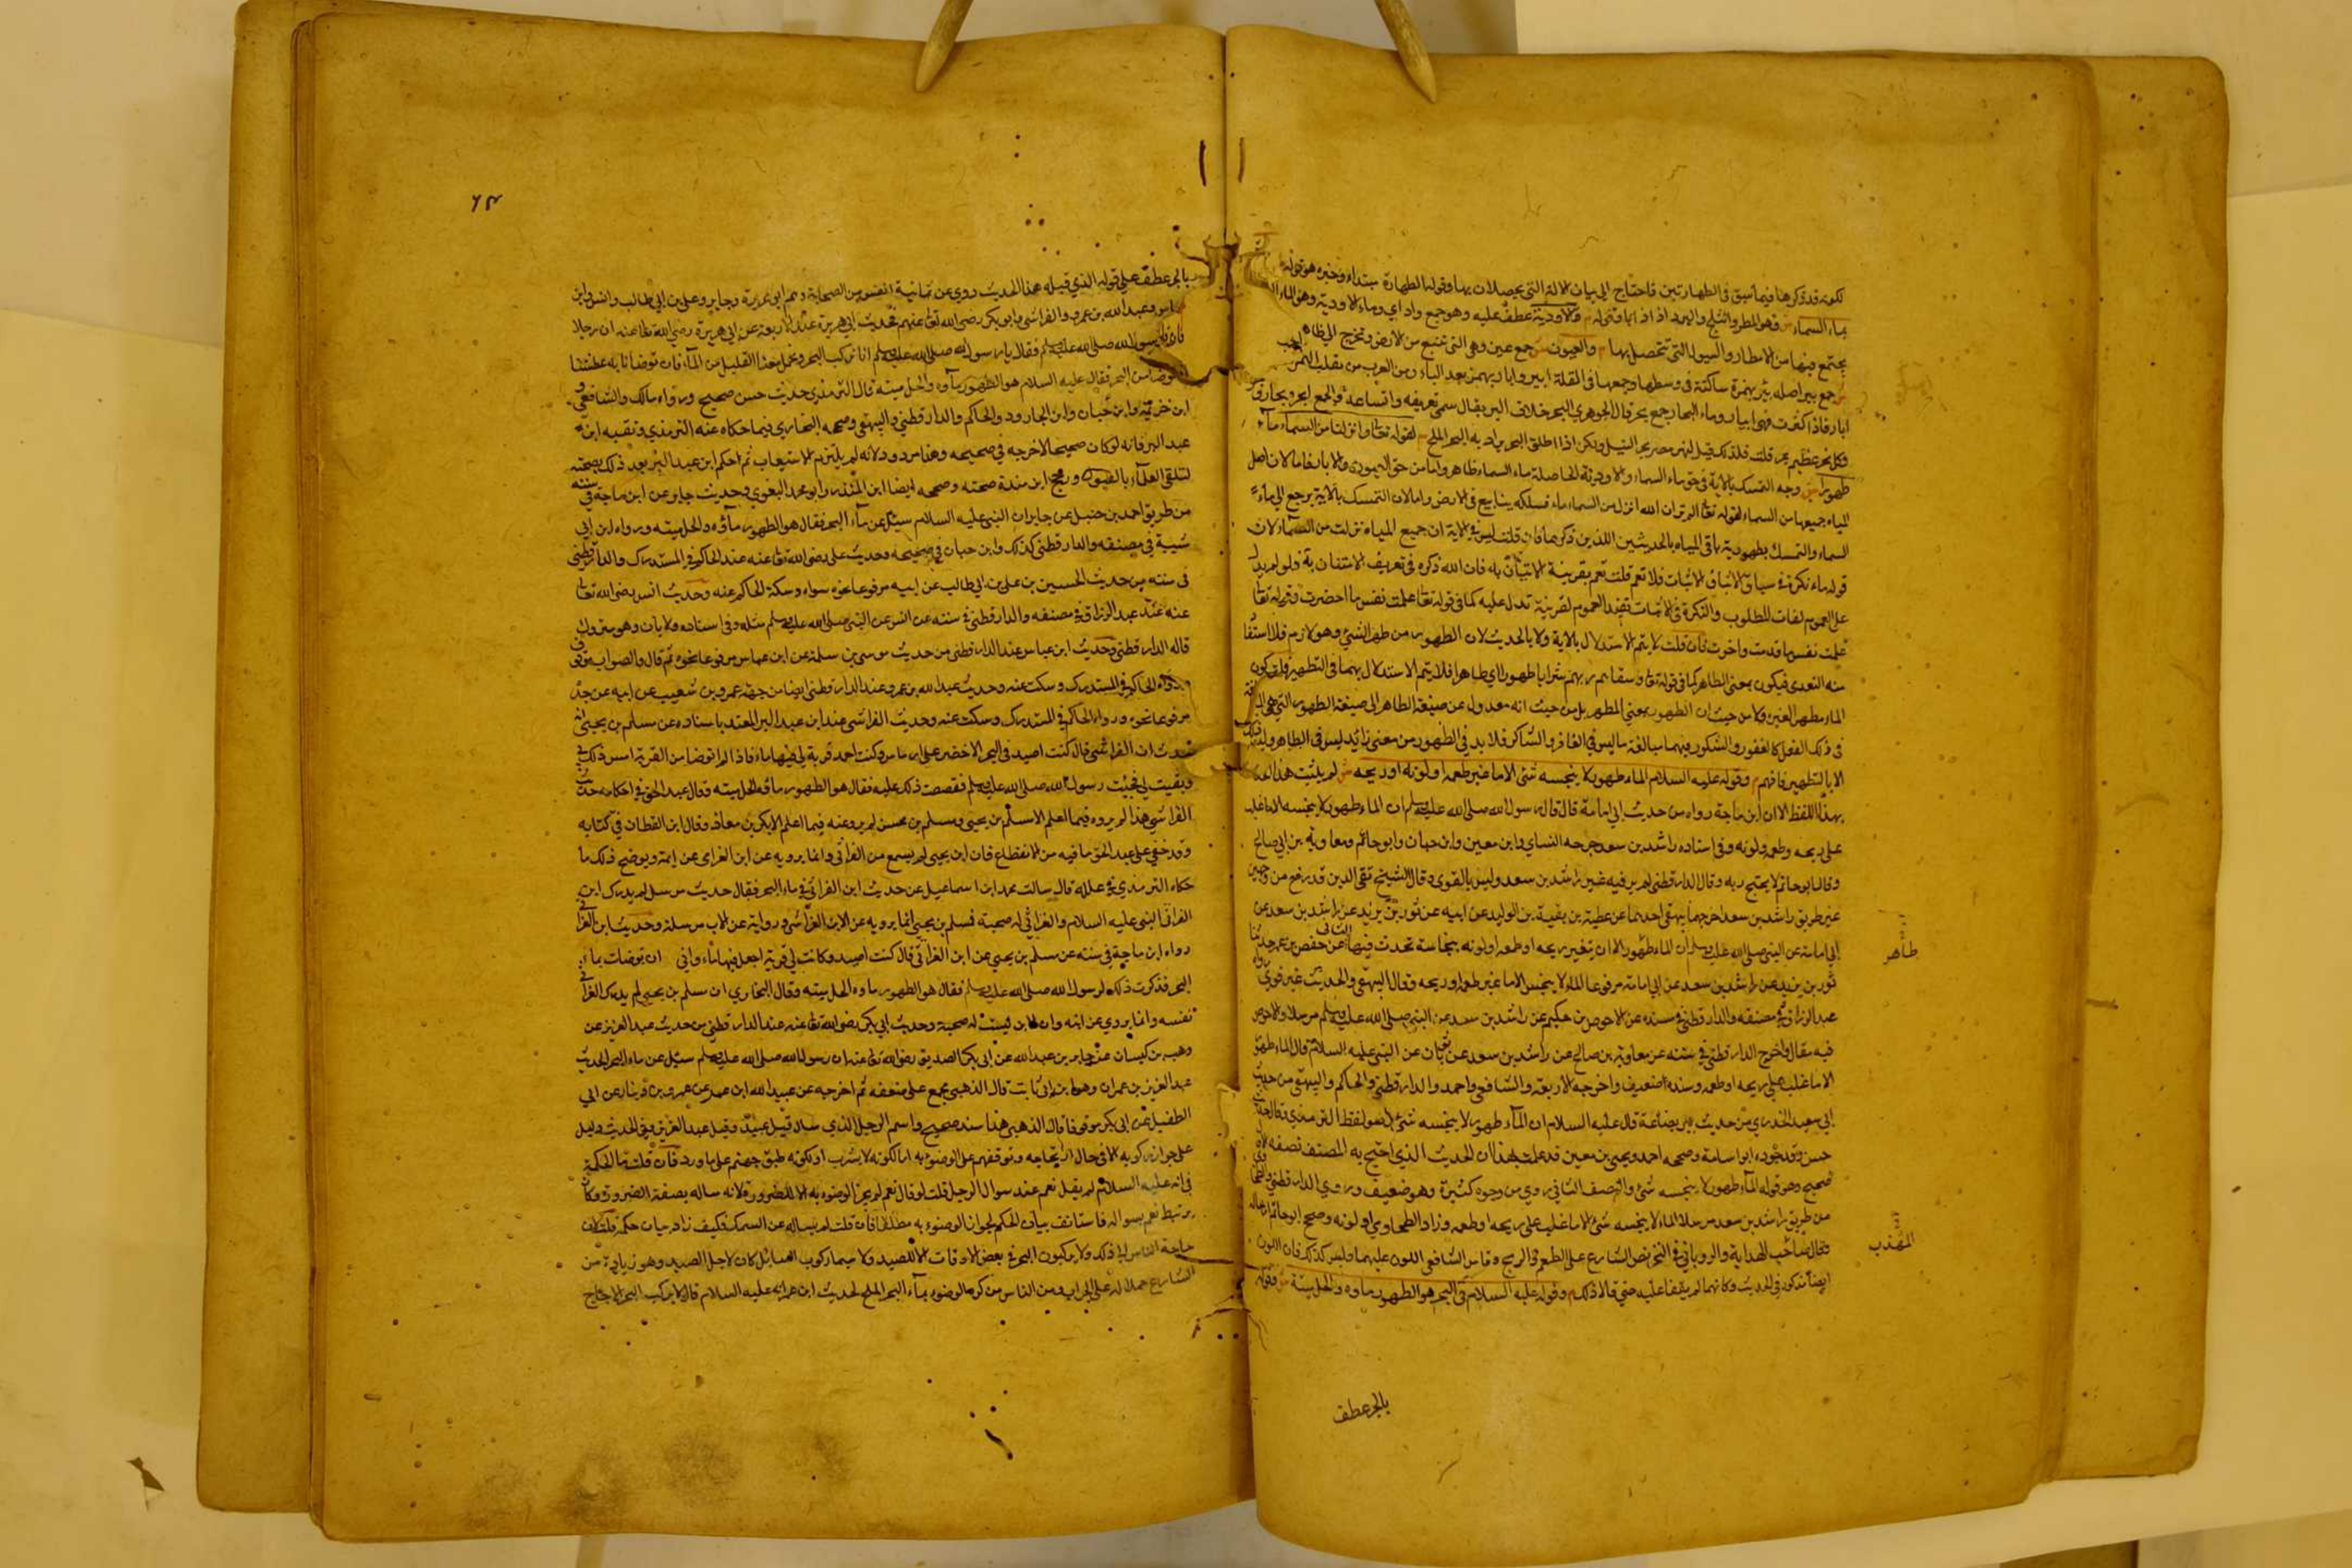 لكونه قد ذكرهنا فيما سبق في الطهارتين فاحتاج الى بيان الالة التي يحصلان بها وقوله الطهارة مبتداء وخبره هو قوله
بماء السماء ش وهو المطر والثلج والبرد اذا ذابا وقوله م والاودية عطف عليه وهو جمع واد اي وماء الاودية وهو الماء
يجتمع فيها من الامطار والسيول التي تتحصل بها م والعيون ش جمع عين وهي التي تنبع من الارض وتخرج الى ظاهر
ش جمع بير اصله بئر بهمزة ساكنة في وسطها وجمعها في القلة ابير وابار بهمز بعد الباء ومن العرب من يقلب الهمز
ابار فاذا كثرت فهى ابيار وماء البحار جمع بحر قال الجوهري البحر خلاف البر يقال سمى لعمقه واتساعه والجمع ابحر وبحار
وكل نهر عظيم بحر قلت فلذلك قيل لنهر مصر بحر النيل ولكن اذا اطلق البحر يراد به البحر الملح م لقوله تعا وانزلنا من السماء ماء
طهورا ش وجه التمسك بالاية في حق ماء السماء والاودية الحاصلة بماء السماء ظاهر واما من حق العيون والابار فاما لان اصل
المياه جميعها من السماء لقوله تعا الم تر ان الله انزل من السماء ماء فسلكه ينابيع في الارض واما لان التمسك بالاية يرجع الى ماء
السماء والتمسك بطهورية باقى المياه بالحديثين اللذين ذكرهما فان قلت ليس في الاية ان جميع المياه نزلت من السماء لان
قوله ماء نكرة في سياق الاثبات فلا تعم قلت تعم بقرينة الامتنان به فان الله ذكره في تعريف الامتنان به فلو لم يدل
على العموم لفات المطلوب والنكرة في الاثبات تفيد العموم لقرينة تدل عليه كما في قوله تعا علمت نفس ما احضرت وقوله تعا
علمت نفس ما قدمت واخرت فان قلت لا يتم الاستدلال بالاية ولا بالحديث لان الطهور من طهر الشيء وهو لازم فلا استفا
منه التعدى فيكون بمعنى الطاهر كما في قوله تعا وسقاهم ربهم شرابا طهورا اي طاهرا فلا يتم الاستدلال بهما في التطهير قلت كون
الماء مطهرا لغيره لا من حيث ان الطهور بمعنى المطهر بل من حيث انه معدول عن صيغة الطاهر الى صيغة الطهور التي هى
في ذلك الفعل كالغفور والشكور فيهما مبالغة ما ليس في الغافر والشاكر فلا بد في الطهور من معنى زائد ليس في الطاهر وليس
الا بالتطهير فافهم م وقوله عليه السلام الماء طهور لا ينجسه شئ الا ما غير طعمه او لونه او ريحه ش لم يثبت هذا
بهذا اللفظ الا ان ابن ماجة رواه من حديث ابي امامة قال قال رسول الله صلى الله عليه وسلم ان الماء طهور لا ينجسه الا ما غلب
على ريحه وطعمه ولونه وفي اسناده راشد بن سعد جرحه النساي وابن معين وابن حبان وابو حاتم ومعاوية بن ابي صالح
وقال ابو حاتم لا يحتج به وقال الدارقطني لم يرفيه غير راشد بن سعد وليس بالقوى وقال الشيخ تقى الدين قد رفع من وجهين
غير طريق راشد بن سعد اخرجهما البيهقى احدهما عن عطية بن بقية بن الوليد عن ابيه عن ثور بن يزيد عن راشد بن سعد عن
ابي امامة عن النبي صلى الله عليه وسلم ان الماء طهور الا ان تغير ريحه او طعمه او لونه بنجاسة تحدث فيها الثاني عن حفص بن عمر حدثنا
ثور بن يزيد عن راشد بن سعد عن ابي امامة مرفوعا الماء لا ينجس الا ما غير طعمه او ريحه وقال البيهقى والحديث غير قوى رواه
عبد الرزاق في مصنفه والدارقطني في سننه عن الاحوص بن حكيم عن راشد بن سعد عن النبي صلى الله عليه وسلم مرسلا والاحوص
فيه مقال واخرج الدارقطني في سننه عن معاوية بن صالح عن راشد بن سعد عن ثوبان عن النبي عليه السلام قال الماء طهور
الا ما غلب على ريحه او طعمه وسنده ضعيف واخرجه الاربعة والشافعى واحمد والدارقطني والحاكم والبيهقى من حديث
ابي سعيد الخدري من حديث بير بضاعة قال عليه السلام ان الماء طهور لا ينجسه شئ لفظ الترمذي وقال حديث
حسن وقد جوده ابو اسامة وصححه احمد ويحيى بن معين قد علمت بهذا ان الحديث الذي احتج به المصنف نصفه الاول
صحيح وهو قوله الماء طهور لا ينجسه شئ والنصف الثاني روي من وجوه كثيرة وهو ضعيف وروي الدارقطني والطحا
من طريق راشد بن سعد مرسلا الماء لا ينجسه شئ الا ما غلب على ريحه او طعمه وزاد الطحاوي او لونه وصحح ابو حاتم ارساله
وقال صاحب الهداية والروياني في البحر نص الشارع على الطعم والريح وقاس الشافعى اللون عليهما وليس كذلك فان اللون
ايضا مذكور في الحديث وكانهما لم يقفا عليه حتى قالا ذلك م وقوله عليه السلام في البحر هو الطهور ماوه والحل ميتته ش وقوله
طاهر
المهذب
بالجر عطف
٦٤
بالجر عطف على قوله الذي قبله هذا الحديث روى عن ثمانية انفس من الصحابة وهم ابو هريرة وجابر وعلى بن ابي طالب وانس وابن
عباس وعبد الله بن عمرو والفراسى وابو بكر رضي الله تعا عنهم فحديث ابي هريرة عند الاربعة عن ابي هريرة رضي الله تعا عنه ان رجلا
رسول الله صلى الله عليه وسلم فقال يا رسول الله صلى الله عليه وسلم انا نركب البحر ونحمل معنا القليل من الماء فان توضانا به عطشنا
من البحر فقال عليه السلام هو الطهور ماوه والحل ميتته قال الترمذي حديث حسن صحيح ورواه مالك والشافعى
ابن خزيمة وابن حبان وابن الجارود والحاكم والدارقطني والبيهقى وصححه البخاري فيما حكاه عنه الترمذي وتعقبه ابن
عبد البر فانه لو كان صحيحا لاخرجه في صحيحه وهذا مردود لانه لم يلتزم الاستيعاب ثم احكم ابن عبد البر بعد ذلك بصحته
لتلقى العلماء بالقبول ورجح ابن مندة صحته وصححه ايضا ابن المنذر وابو محمد البغوي وحديث جابر عن ابن ماجة في سننه
من طريق احمد بن حنبل عن جابر ان النبي عليه السلام سئل عن ماء البحر فقال هو الطهور ماؤه والحل ميتته ورواه ابن ابي
شيبة في مصنفه والدارقطني كذلك وابن حبان في صحيحه وحديث على رضي الله تعا عنه عند الحاكم في المستدرك والدارقطني
في سننه من حديث الحسين بن على بن ابي طالب عن ابيه مرفوعا نحوه سواء وسكت الحاكم عنه وحديث انس رضي الله تعا
عنه عند عبد الرزاق في مصنفه والدارقطني في سننه عن انس عن النبي صلى الله عليه وسلم مثله وفي اسناده ابان وهو متروك
قاله الدارقطني وحديث ابن عباس عند الدارقطني من حديث موسى بن سلمة عن ابن عباس مرفوعا نحوه ثم قال والصواب موقوف
ورواه الحاكم في المستدرك وسكت عنه وحديث عبد الله بن عمرو عند الدارقطني ايضا من جهة عمرو بن شعيب عن ابيه عن جده
مرفوعا نحوه ورواه الحاكم في المستدرك وسكت عنه وحديث الفراسى عند ابن عبد البر المعتد باسناده عن مسلم بن يحيى انه
حدث ان الفراسى قال كنت اصيد في البحر الاخضر على ارماس وكنت احمد قربة لى فيها ماء فاذا لم اتوضا من القربة امس ذلك بي
وبقيت لى فجئت رسول الله صلى الله عليه وسلم فقصصت ذلك عليه فقال هو الطهور ماؤه الحل ميتته وقال عبد الحق في احكامه حديث
الفراسى هذا لم يروه فيما اعلم الا مسلم بن يحيى ومسلم بن محسن لم يرو عنه فيما اعلم الا بكر بن معاذ وقال ابن القطان في كتابه
وقد خفي على عبد الحق ما فيه من الانقطاع فان ابن يحيى لم يسمع من الفراسى وانما يرويه عن ابن الفراسي عن ابيه ويوضح ذلك ما
حكاه الترمذي في علله قال سالت محمد ابن اسماعيل عن حديث ابن الفراسى في ماء البحر فقال حديث مرسل لم يدرك ابن
الفراسى النبي عليه السلام والفراسى له صحبة فمسلم بن يحيى انما يرويه عن الابن الفراسى ورواية عن الاب مرسلة وحديث ابن الفراسى
رواه ابن ماجة في سننه عن مسلم بن يحيى عن ابن الفراسى قال كنت اصيد وكانت لى قربة اجعل فيها ماء وانى ان توضات بماء
البحر فذكرت ذلك لرسول الله صلى الله عليه وسلم فقال هو الطهور ماوه الحل ميتته وقال البخاري ان مسلم بن يحيى لم يدرك الفراسى
نفسه وانما يروي عن ابنه وان الابن ليست له صحبة وحديث ابي بكر رضي الله تعا عنه عند الدارقطني من حديث عبد العزيز عن
وهب بن كيسان عن جابر بن عبد الله عن ابي بكر الصديق رضي الله تعا عنه ان رسول الله صلى الله عليه وسلم سئل عن ماء البحر الحديث
عبد العزيز بن عمران وهو ابن ابي ثابت قال الذهبي مجمع على ضعفه ثم اخرجه عن عبيد الله ابن عمر عن عمرو بن دينار عن ابي
الطفيل عن ابي بكر موقوفا قال الذهبي هذا سند صحيح واسم الرجل الذي سال قيل عبيد وقيل عبد العزيز وفي الحديث دليل
على جواز ركوبه الا في حال ارتجاجه وتوقفهم على الوضوء به اما لكونه لا يشرب او لكونه طبق جهنم على ما ورد فان قلت ما الحكمة
في انه عليه السلام لم يقل نعم عند سوال الرجل قلت لو قال نعم لم يجز الوضوء به الا للضرورة لانه ساله بصفة الضرورة
يرتبط نعم بسواله فاستانف بيان الحكم لجواز الوضوء به مطلقا فان قلت لم يساله عن السمك فكيف زاد بيان حكمه قلت لان
حاجة الناس الى ذلك ولا يركبون البحر في بعض الاوقات الا للصيد ولا سيما ركوب السائل كان لاجل الصيد وهو زيادة من
الشارع حملا له على الجواب ومن الناس من كره الوضوء بماء البحر الملح لحديث ابن عمر انه عليه السلام قال لا يركب البحر الا حاج